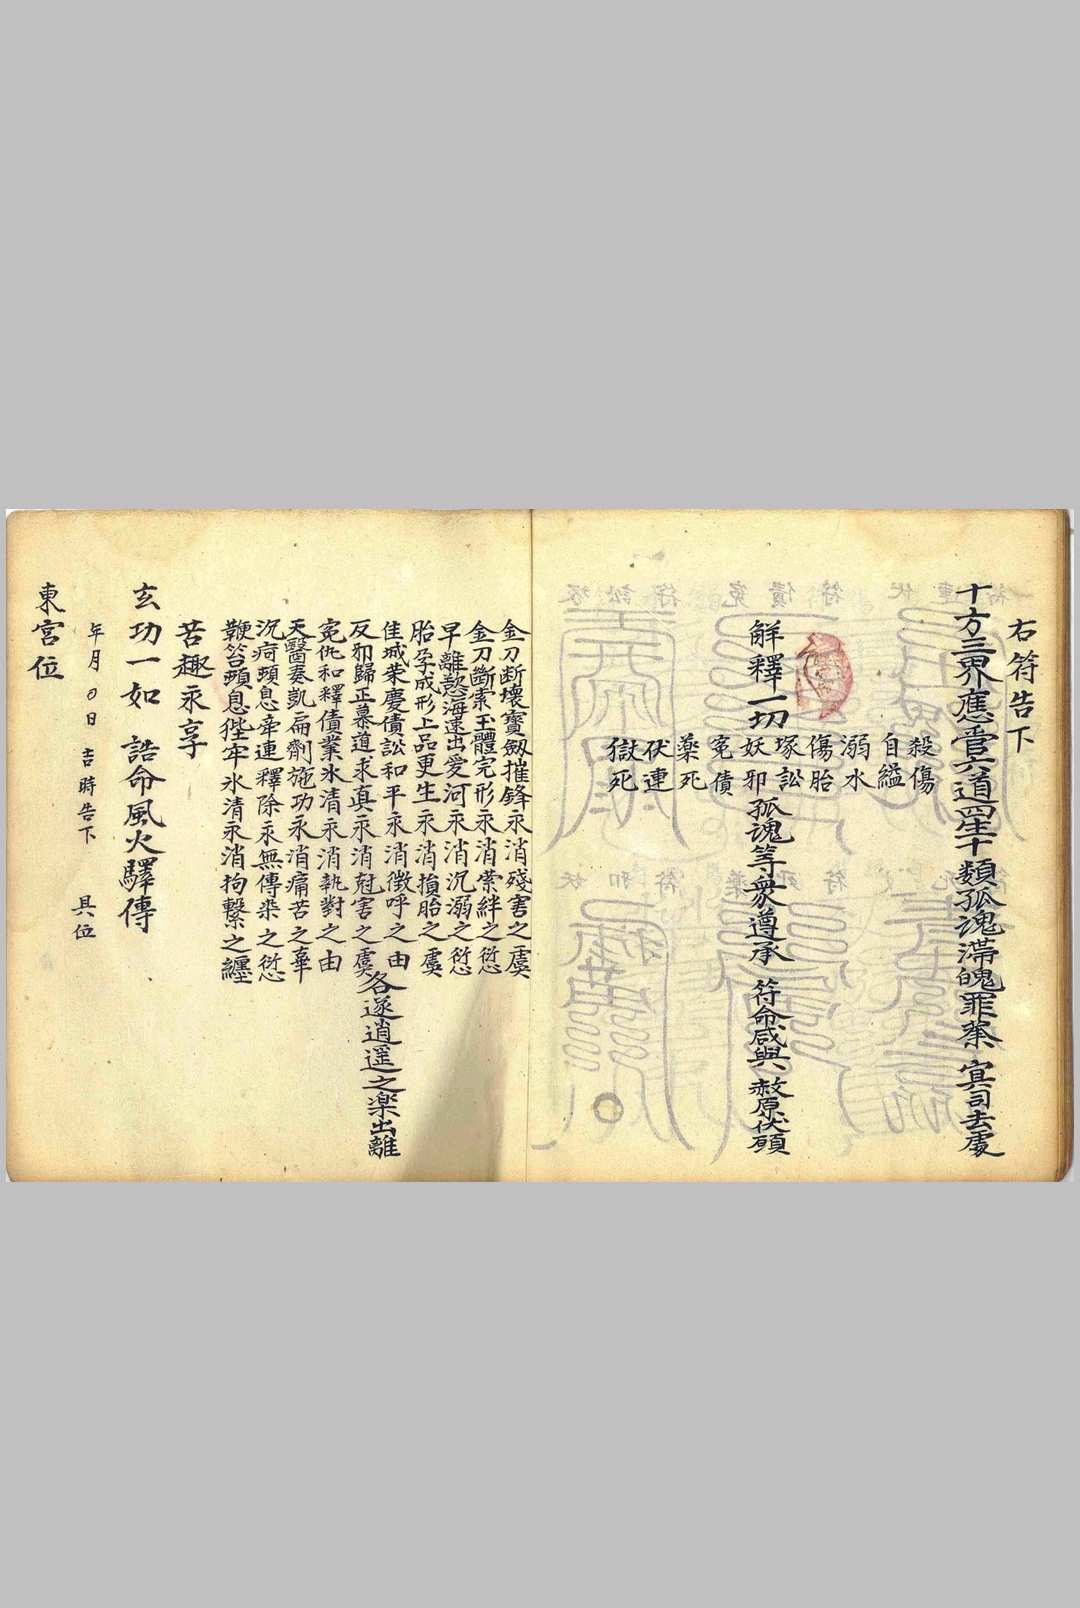 右符告下
十方三界應管六道四生十類孤魂滯魄罪𣑱 冥司去處
殺傷
自縊
溺水
傷胎
塚訟
解釋一切妖邪孤魂等衆遵承 符命咸與 赦原伏願
冤債
藥死
伏連
獄死
金刀断壊寶劔摧鋒永消殘害之虞
金刀斷索玉體完形永消縈絆之愆
早離慾海遠出愛河永消沉溺之愆
胎孕成形上品更生永消損胎之虞
佳城荣慶債訟和平永消徵呼之由
反邪歸正慕道求真永消尅害之虞各遂逍遥之楽出離
冤仇和釋債業氷清永消執對之由
天醫奏凱扁劑施功永消痛苦之辜
沉疴頓息牽連釋除永無傳染之愆
鞭笞頓息狴牢氷清永消拘繫之纏
苦趣永享
玄功一如 誥命風火驛傳
年月日 吉時告下 具位
東宮位